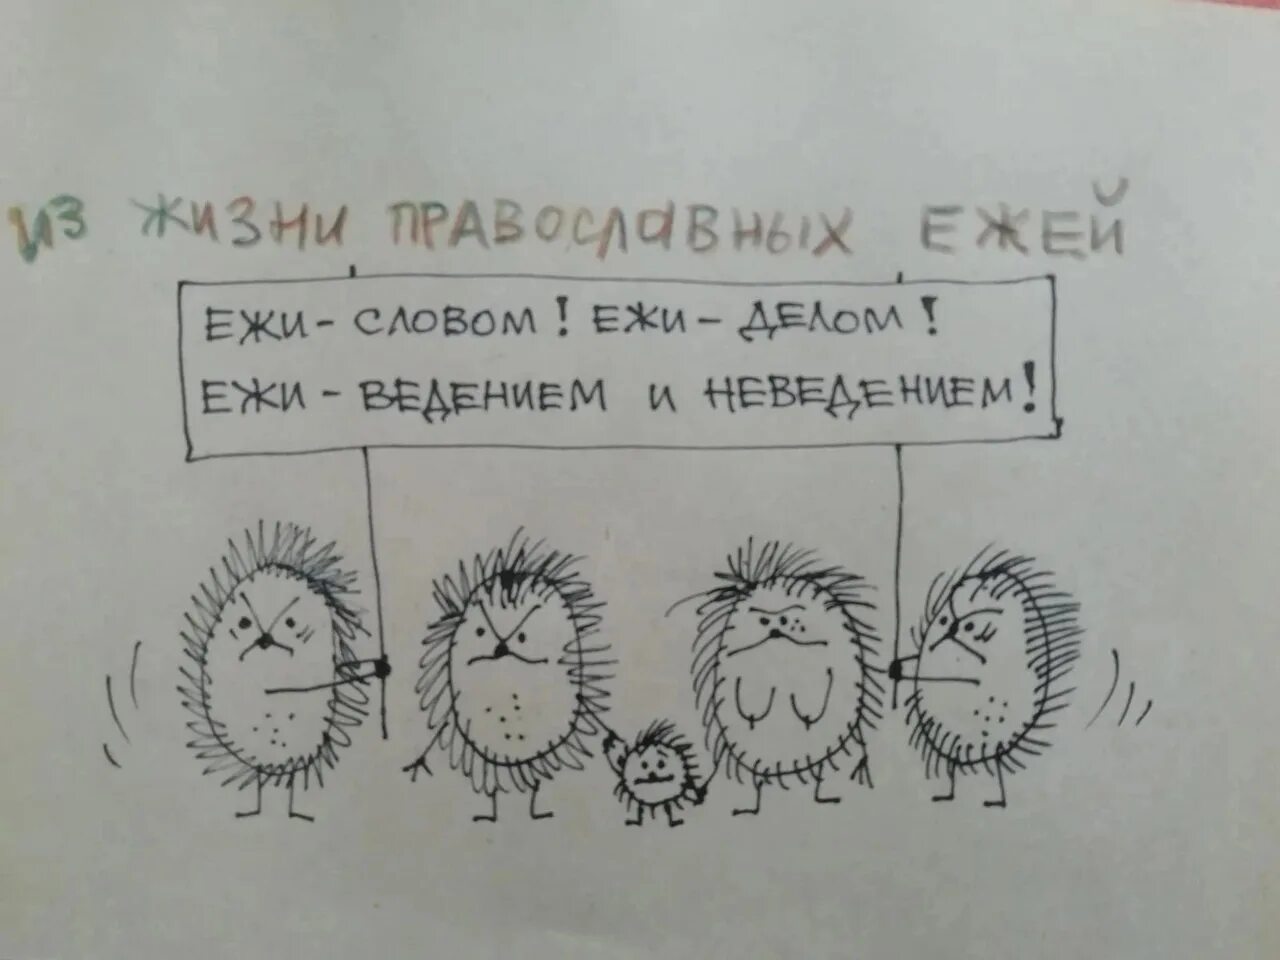 ИЗ ЖИЗНИ ПРАВОСЛАВНЫХ ЕЖЕЙ
ЕЖИ - СЛОВОМ! ЕЖИ - ДЕЛОМ!
ЕЖИ - ВЕДЕНИЕМ И НЕВЕДЕНИЕМ!